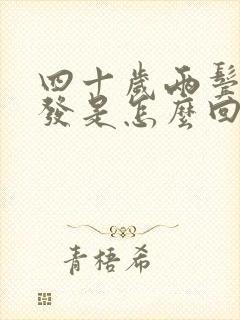 四十歲兩鬢
發是怎麼回
青梧希